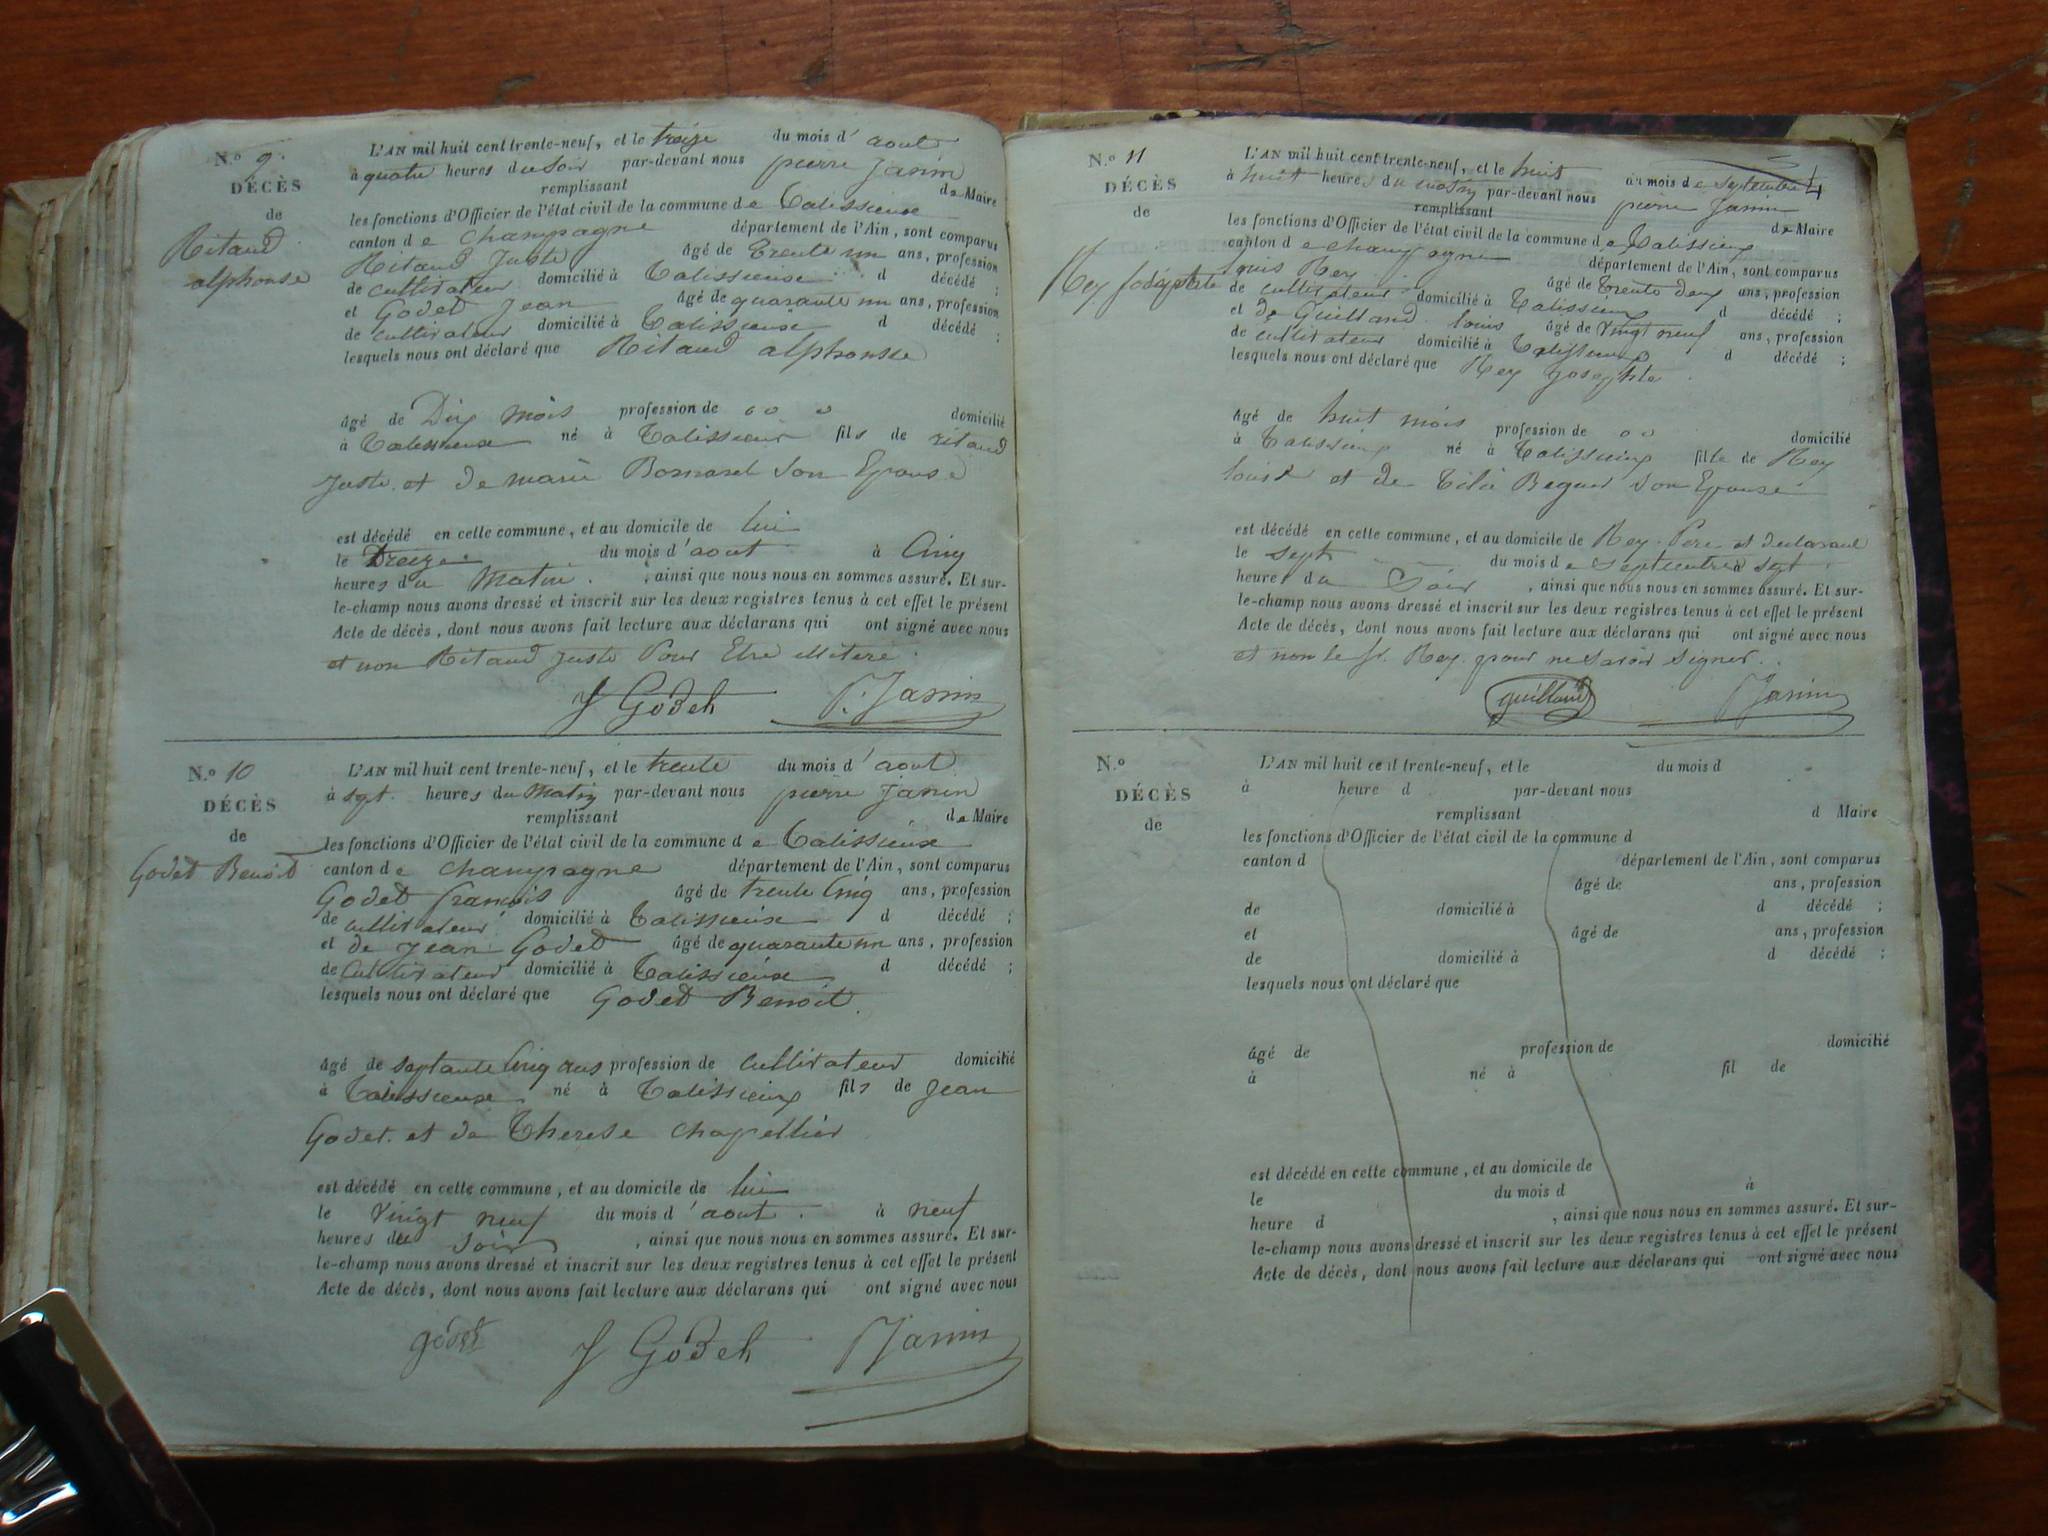 N.o 9.
DÉCÈS
de
Ritaud
alphonse
L'AN mil huit cent trente-neuf, et le treize du mois d'aout
à quatre heures du soir par-devant nous pierre Janin
remplissant de Maire
les fonctions d'Officier de l'état civil de la commune de Talissieuse
canton de Champagne département de l'Ain, sont comparus
Ritaud Juste âgé de Trente un ans, profession
de cultivateur domicilié à Talissieuse d décédé ;
et Godet Jean âgé de quarante un ans, profession
de cultivateur domicilié à Talissieuse d décédé ;
lesquels nous ont déclaré que Ritaud alphonsse
âgé de Dix mois profession de o o o domicilié
à Talissieuse né à Talissieux fils de ritaud
Juste et de marie Bornarel son Epouse
est décédé en cette commune, et au domicile de lui
le Treize du mois d'aout à Cinq
heures du Matin , ainsi que nous nous en sommes assuré. Et sur-
le-champ nous avons dressé et inscrit sur les deux registres tenus à cet effet le présent
Acte de décès, dont nous avons fait lecture aux déclarans qui ont signé avec nous
et non Ritaud Juste Pour Etre illitere.
J Godet P. Janin
N.o 10
DÉCÈS
de
Godet Benoit
L'AN mil huit cent trente-neuf, et le trente du mois d'aout
à sept. heures du Matin par-devant nous pierre Janin
remplissant de Maire
les fonctions d'Officier de l'état civil de la commune de Talissieuse
canton de Champagne département de l'Ain, sont comparus
Godet françois âgé de trente Cinq ans, profession
de cultivateur domicilié à Talissieuse d décédé ;
et de Jean Godet âgé de quarante un ans, profession
de Cultivateur domicilié à Talissieuse d décédé ;
lesquels nous ont déclaré que Godet Benoit.
âgé de septante Cinq ans profession de Cultivateur domicilié
à Talissieuse né à Talissieux fils de Jean
Godet. et de Therese Chapellier
est décédé en cette commune, et au domicile de lui
le Vingt neuf du mois d'aout. à neuf
heures du Soir , ainsi que nous nous en sommes assuré. Et sur-
le-champ nous avons dressé et inscrit sur les deux registres tenus à cet effet le présent
Acte de décès, dont nous avons fait lecture aux déclarans qui ont signé avec nous
godet J Godet P Janin
4
N.o 11
DÉCÈS
de
Rey Josephte
L'AN mil huit cent trente-neuf, et le huit du mois de septembre
à huit heures du matin par-devant nous pierre Janin
remplissant de Maire
les fonctions d'Officier de l'état civil de la commune de Talissieux
canton de champagne département de l'Ain, sont comparus
louis Rey âgé de trente deux ans, profession
de cultivateur domicilié à Talissieux d décédé ;
et de Guilland louis âgé de Vingt neuf ans, profession
de cultivateur domicilié à Talissieux d décédé ;
lesquels nous ont déclaré que Rey Josephte.
âgé de huit mois profession de o o domicilié
à Talissieux né à Talissieux fille de Rey
louis et de Son Epouse
est décédé en cette commune, et au domicile de Rey Pere et declarant
le sept du mois de septembre à sept.
heures du Soir , ainsi que nous nous en sommes assuré. Et sur-
le-champ nous avons dressé et inscrit sur les deux registres tenus à cet effet le présent
Acte de décès, dont nous avons fait lecture aux déclarans qui ont signé avec nous
et non le Sr. Rey pour ne savoir signer.
guilland P Janin
N.o
DÉCÈS
de
L'AN mil huit cent trente-neuf, et le du mois d
à heure d par-devant nous
remplissant d Maire
les fonctions d'Officier de l'état civil de la commune d
canton d département de l'Ain, sont comparus
âgé de ans, profession
de domicilié à d décédé ;
et âgé de ans, profession
de domicilié à d décédé ;
lesquels nous ont déclaré que
âgé de profession de domicilié
à né à fil de
est décédé en cette commune, et au domicile de
le du mois d à
heure d , ainsi que nous nous en sommes assuré. Et sur-
le-champ nous avons dressé et inscrit sur les deux registres tenus à cet effet le présent
Acte de décès, dont nous avons fait lecture aux déclarans qui ont signé avec nous